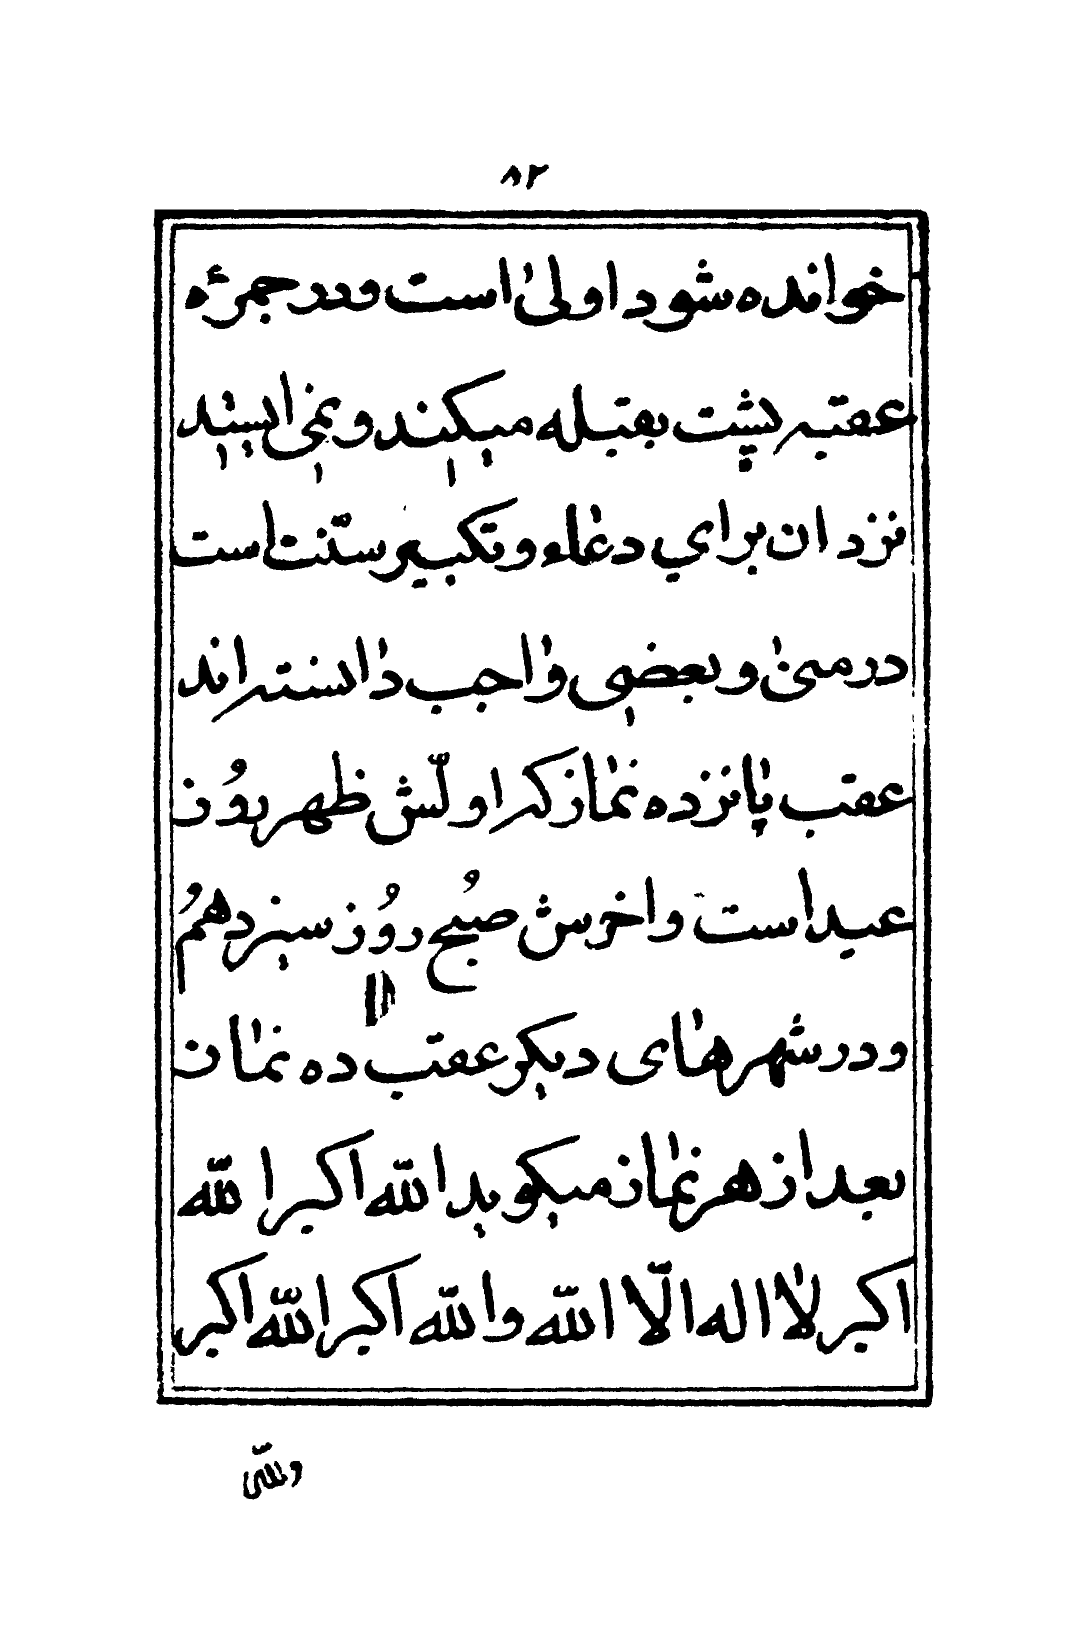 ۸۲
خوانده شود اولیٰ است ودر جمرۀ
عقبه پشت بقبله میکنند ونمی ایستند
نزد ان برای دعاء وتکبیر سنّت است
در منیٰ وبعضی واجب دانسته اند
عقب پانزده نماز که اولّش ظهر روُز
عید است واخرش صبُح روُز سیزدهمُ
ودر شهرهای دیکر عقب ده نماز
بعد از هر نماز میکوید اللّه اکبر اللّه
اکبر لا اله الّا اللّه واللّه اکبر اللّه اکبر
وللّه